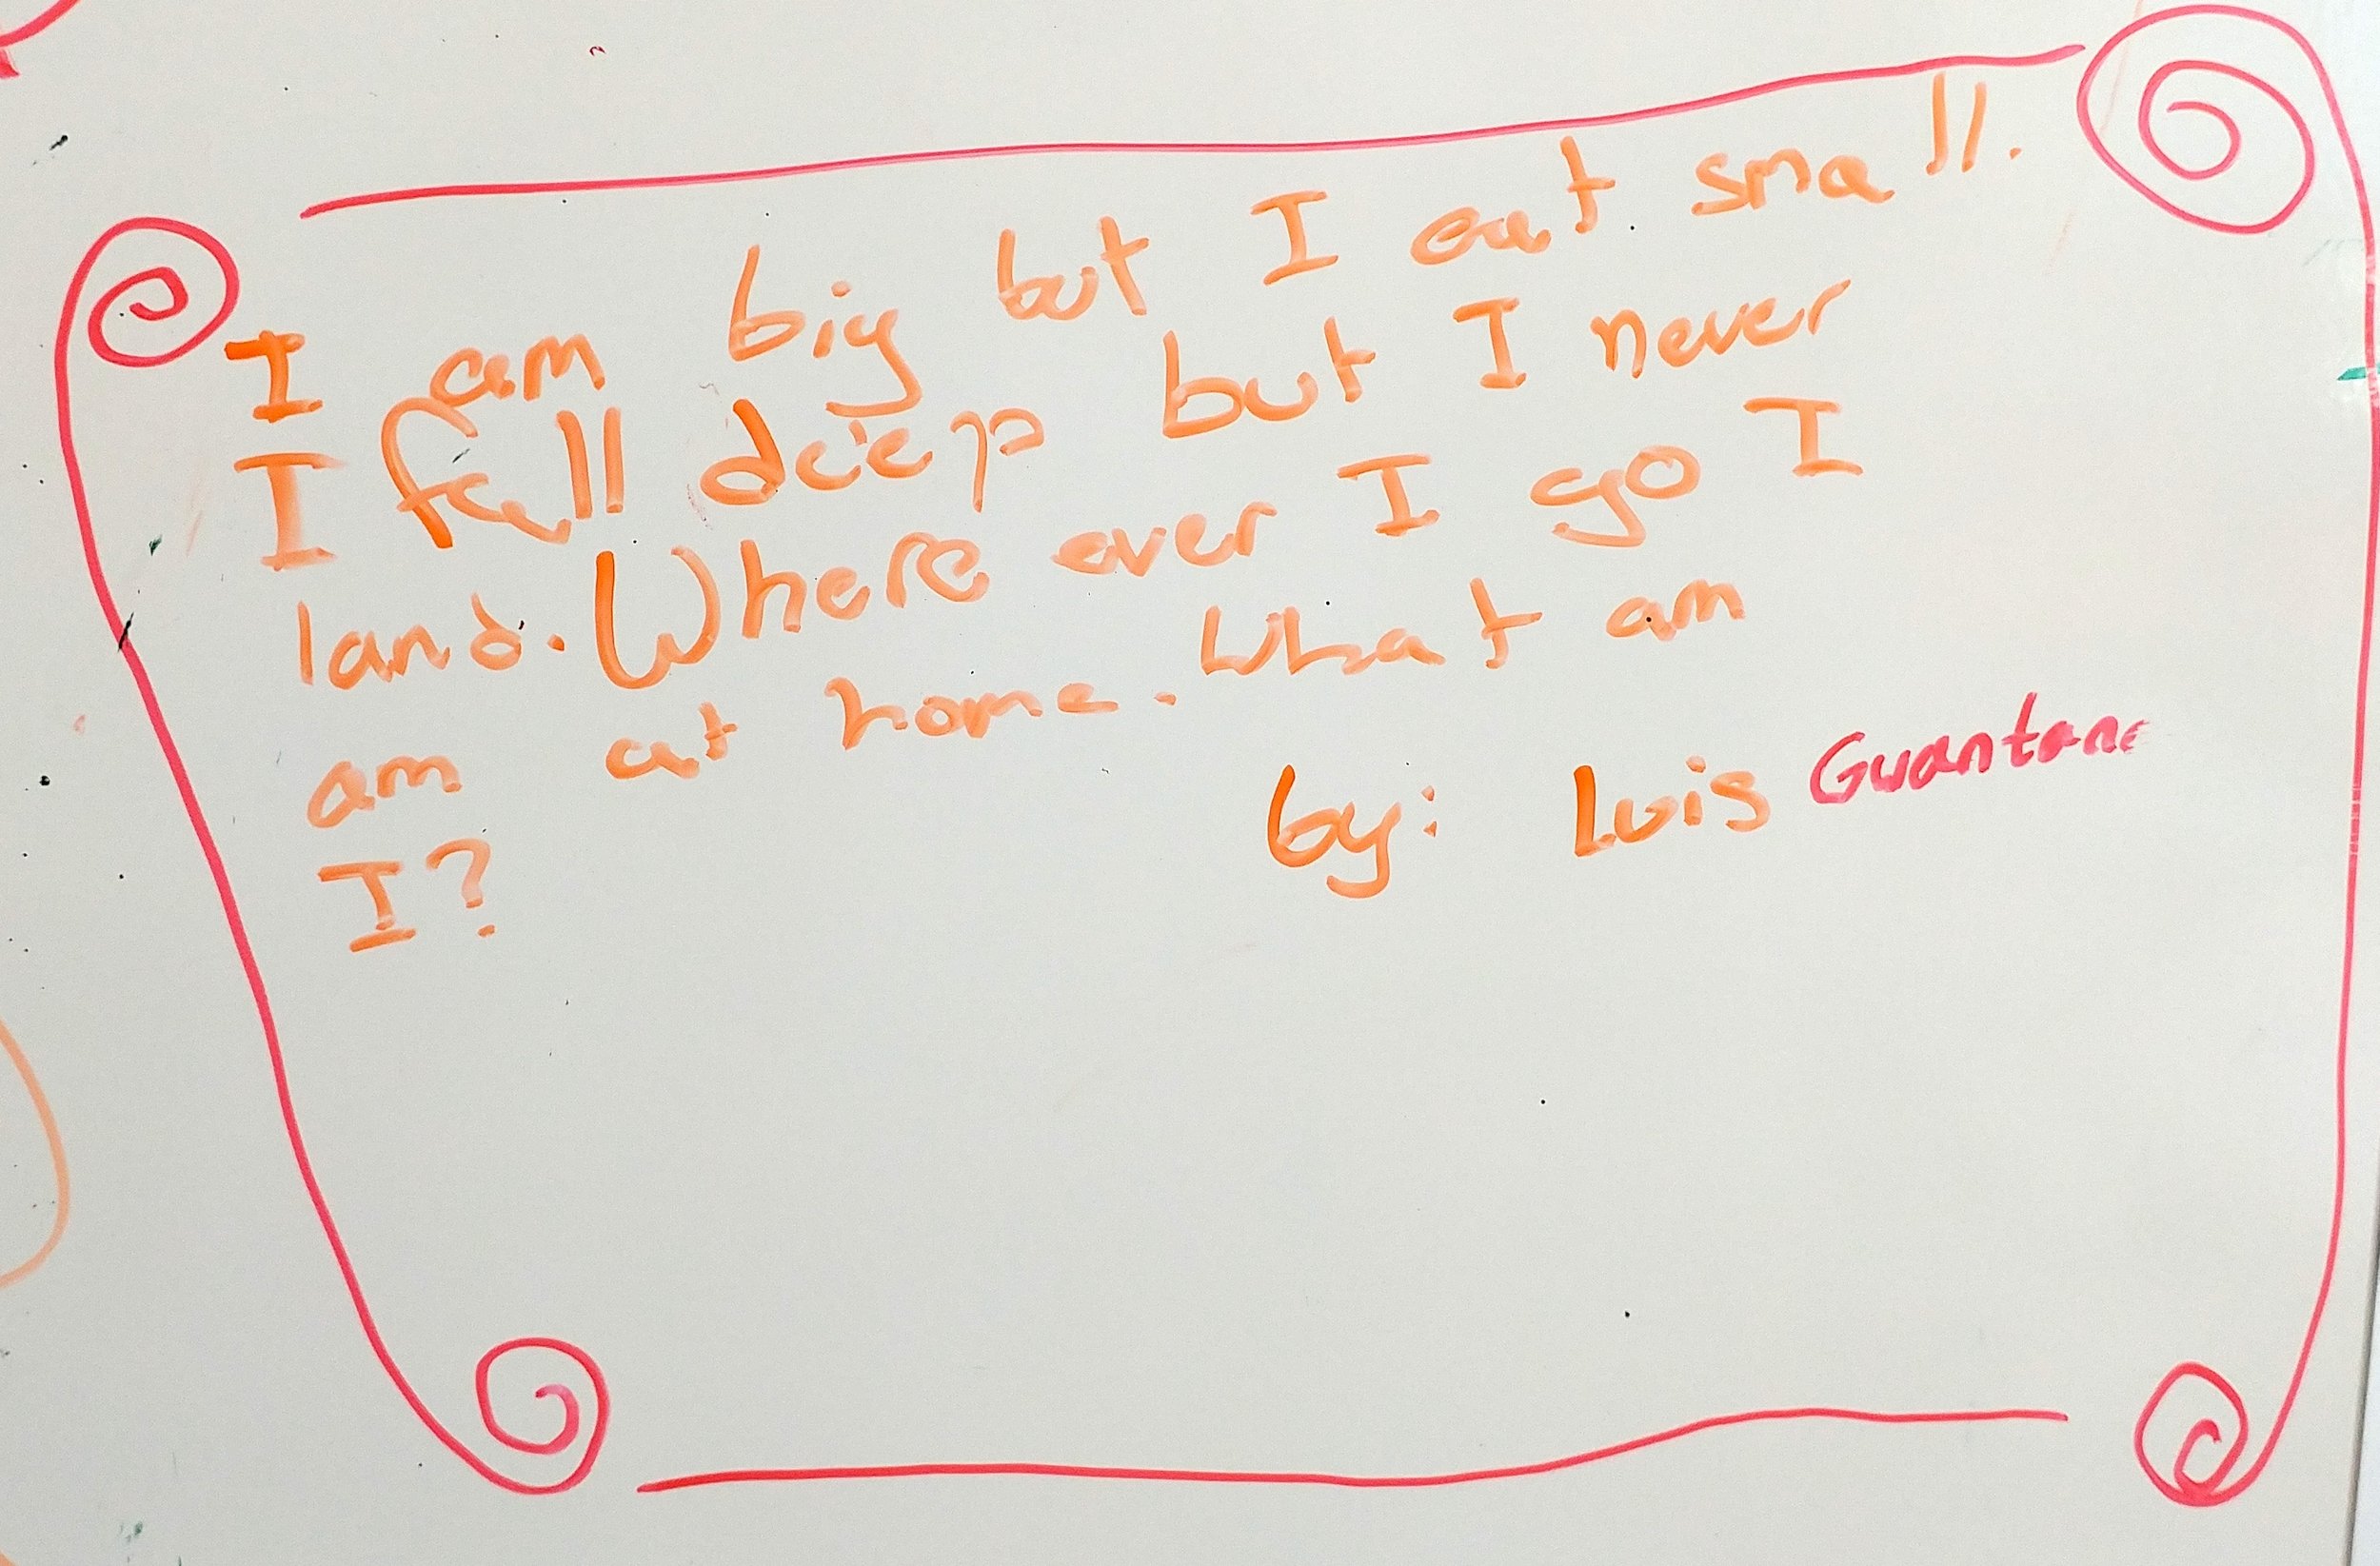 I am big but I eat small.
I fall deep but I never
land. Where ever I go I
am at home. What am
I?
by: Luis Guantan